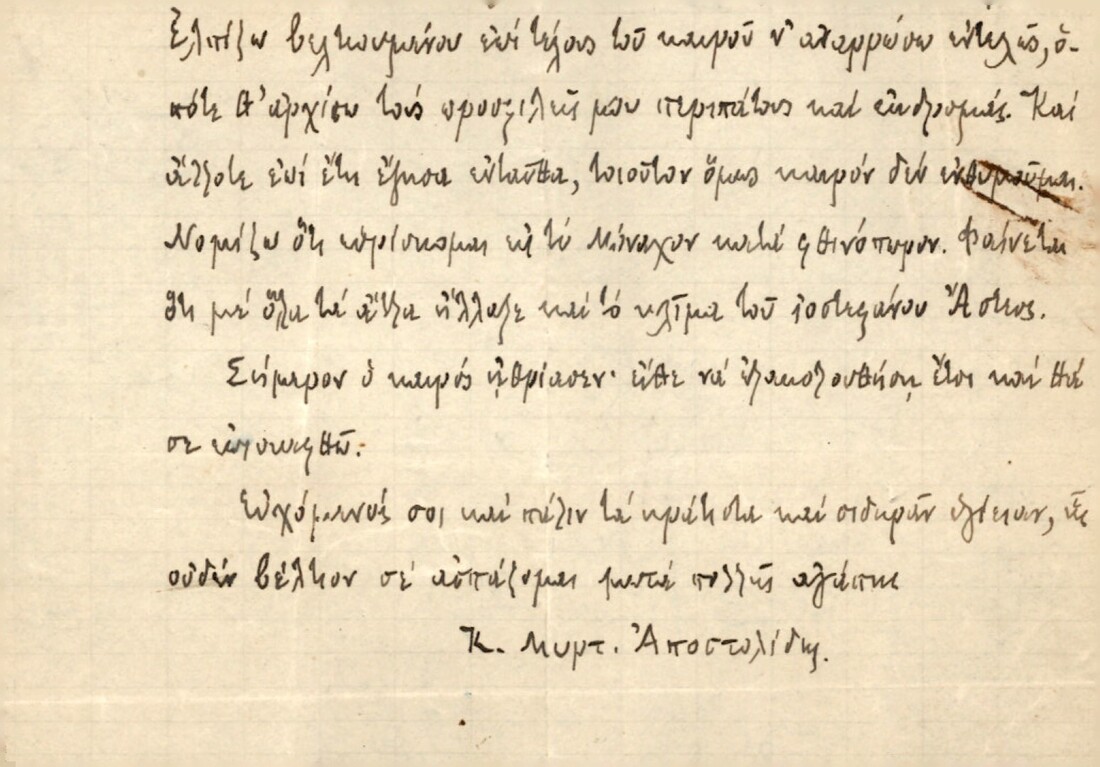 Ἐλπίζω βελτιουμένου ἐπί τέλους τοῦ καιροῦ ν' ἀναρρώσω ἐντελῶς, ὁ-
πότε θ' ἀρχίσω τούς προσφιλεῖς μου περιπάτους καί ἐκδρομάς. Καί
ἄλλοτε ἐπί ἔτη ἔζησα ἐνταῦθα, τοιοῦτον ὅμως καιρόν δέν ἐνθυμοῦμαι.
Νομίζω ὅτι εὑρίσκομαι εἰς τό Μόναχον κατά φθινόπωρον. Φαίνεται
ὅτι μέ ὅλα τά ἄλλα ἤλλαξε καί τό κλῖμα τοῦ ἰοστεφάνου Ἄστεος.
Σήμερον ὁ καιρός ᾐθρίασεν· εἴθε νά ἐξακολουθήσῃ ἔτσι καί θά
σε ἐπισκεφθῶ.
Εὐχόμενός σοι καί πάλιν τά κράτιστα καί σιδηρᾶν ὑγίειαν, ἧς
οὐδέν βέλτιον σέ ἀσπάζομαι μετά πολλῆς ἀγάπης
Κ. Μυρτ. Ἀποστολίδης.